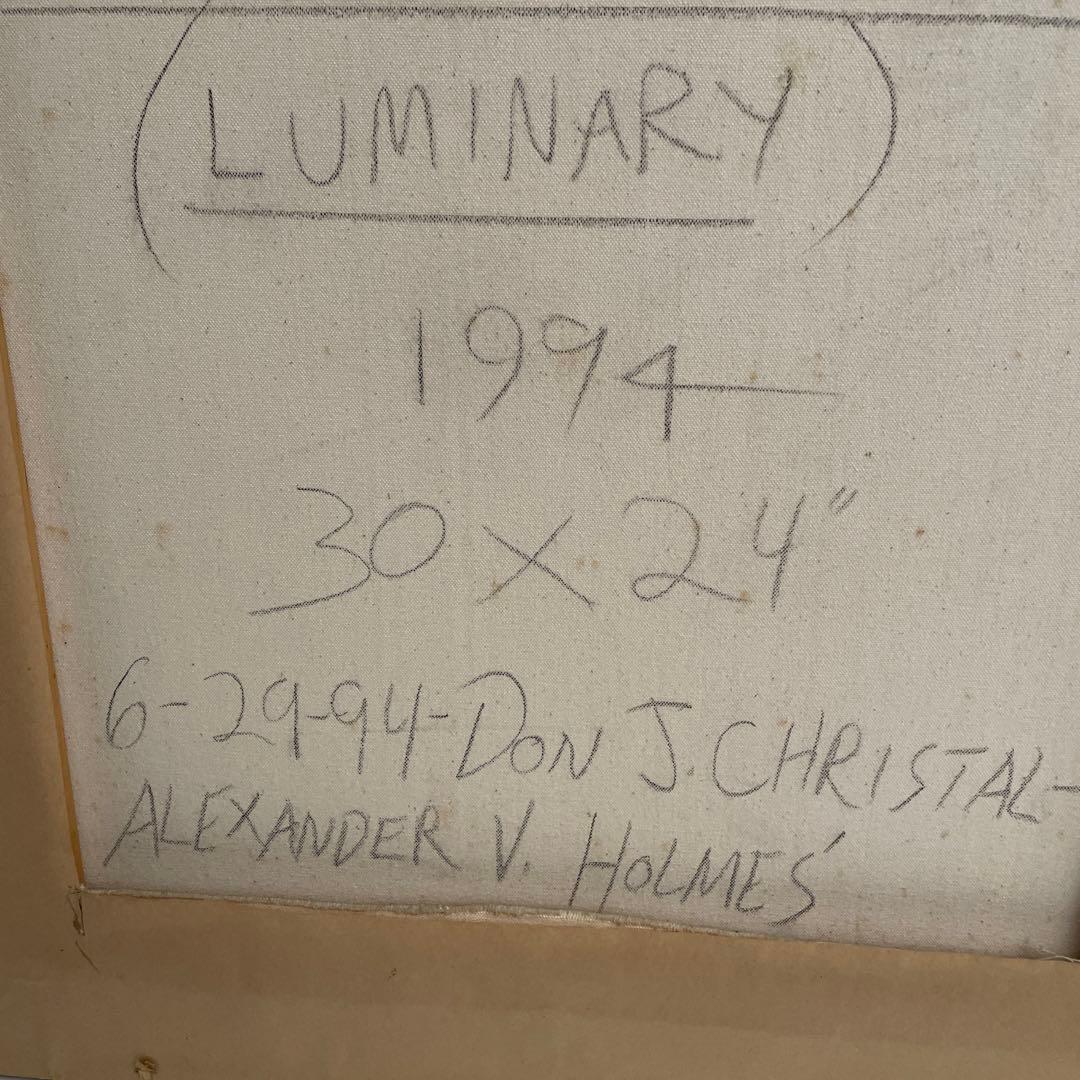 (LUMINARY)
1994
30 X 24"
6-29-94-DON J. CHRISTAL-
ALEXANDER V. HOLMES'